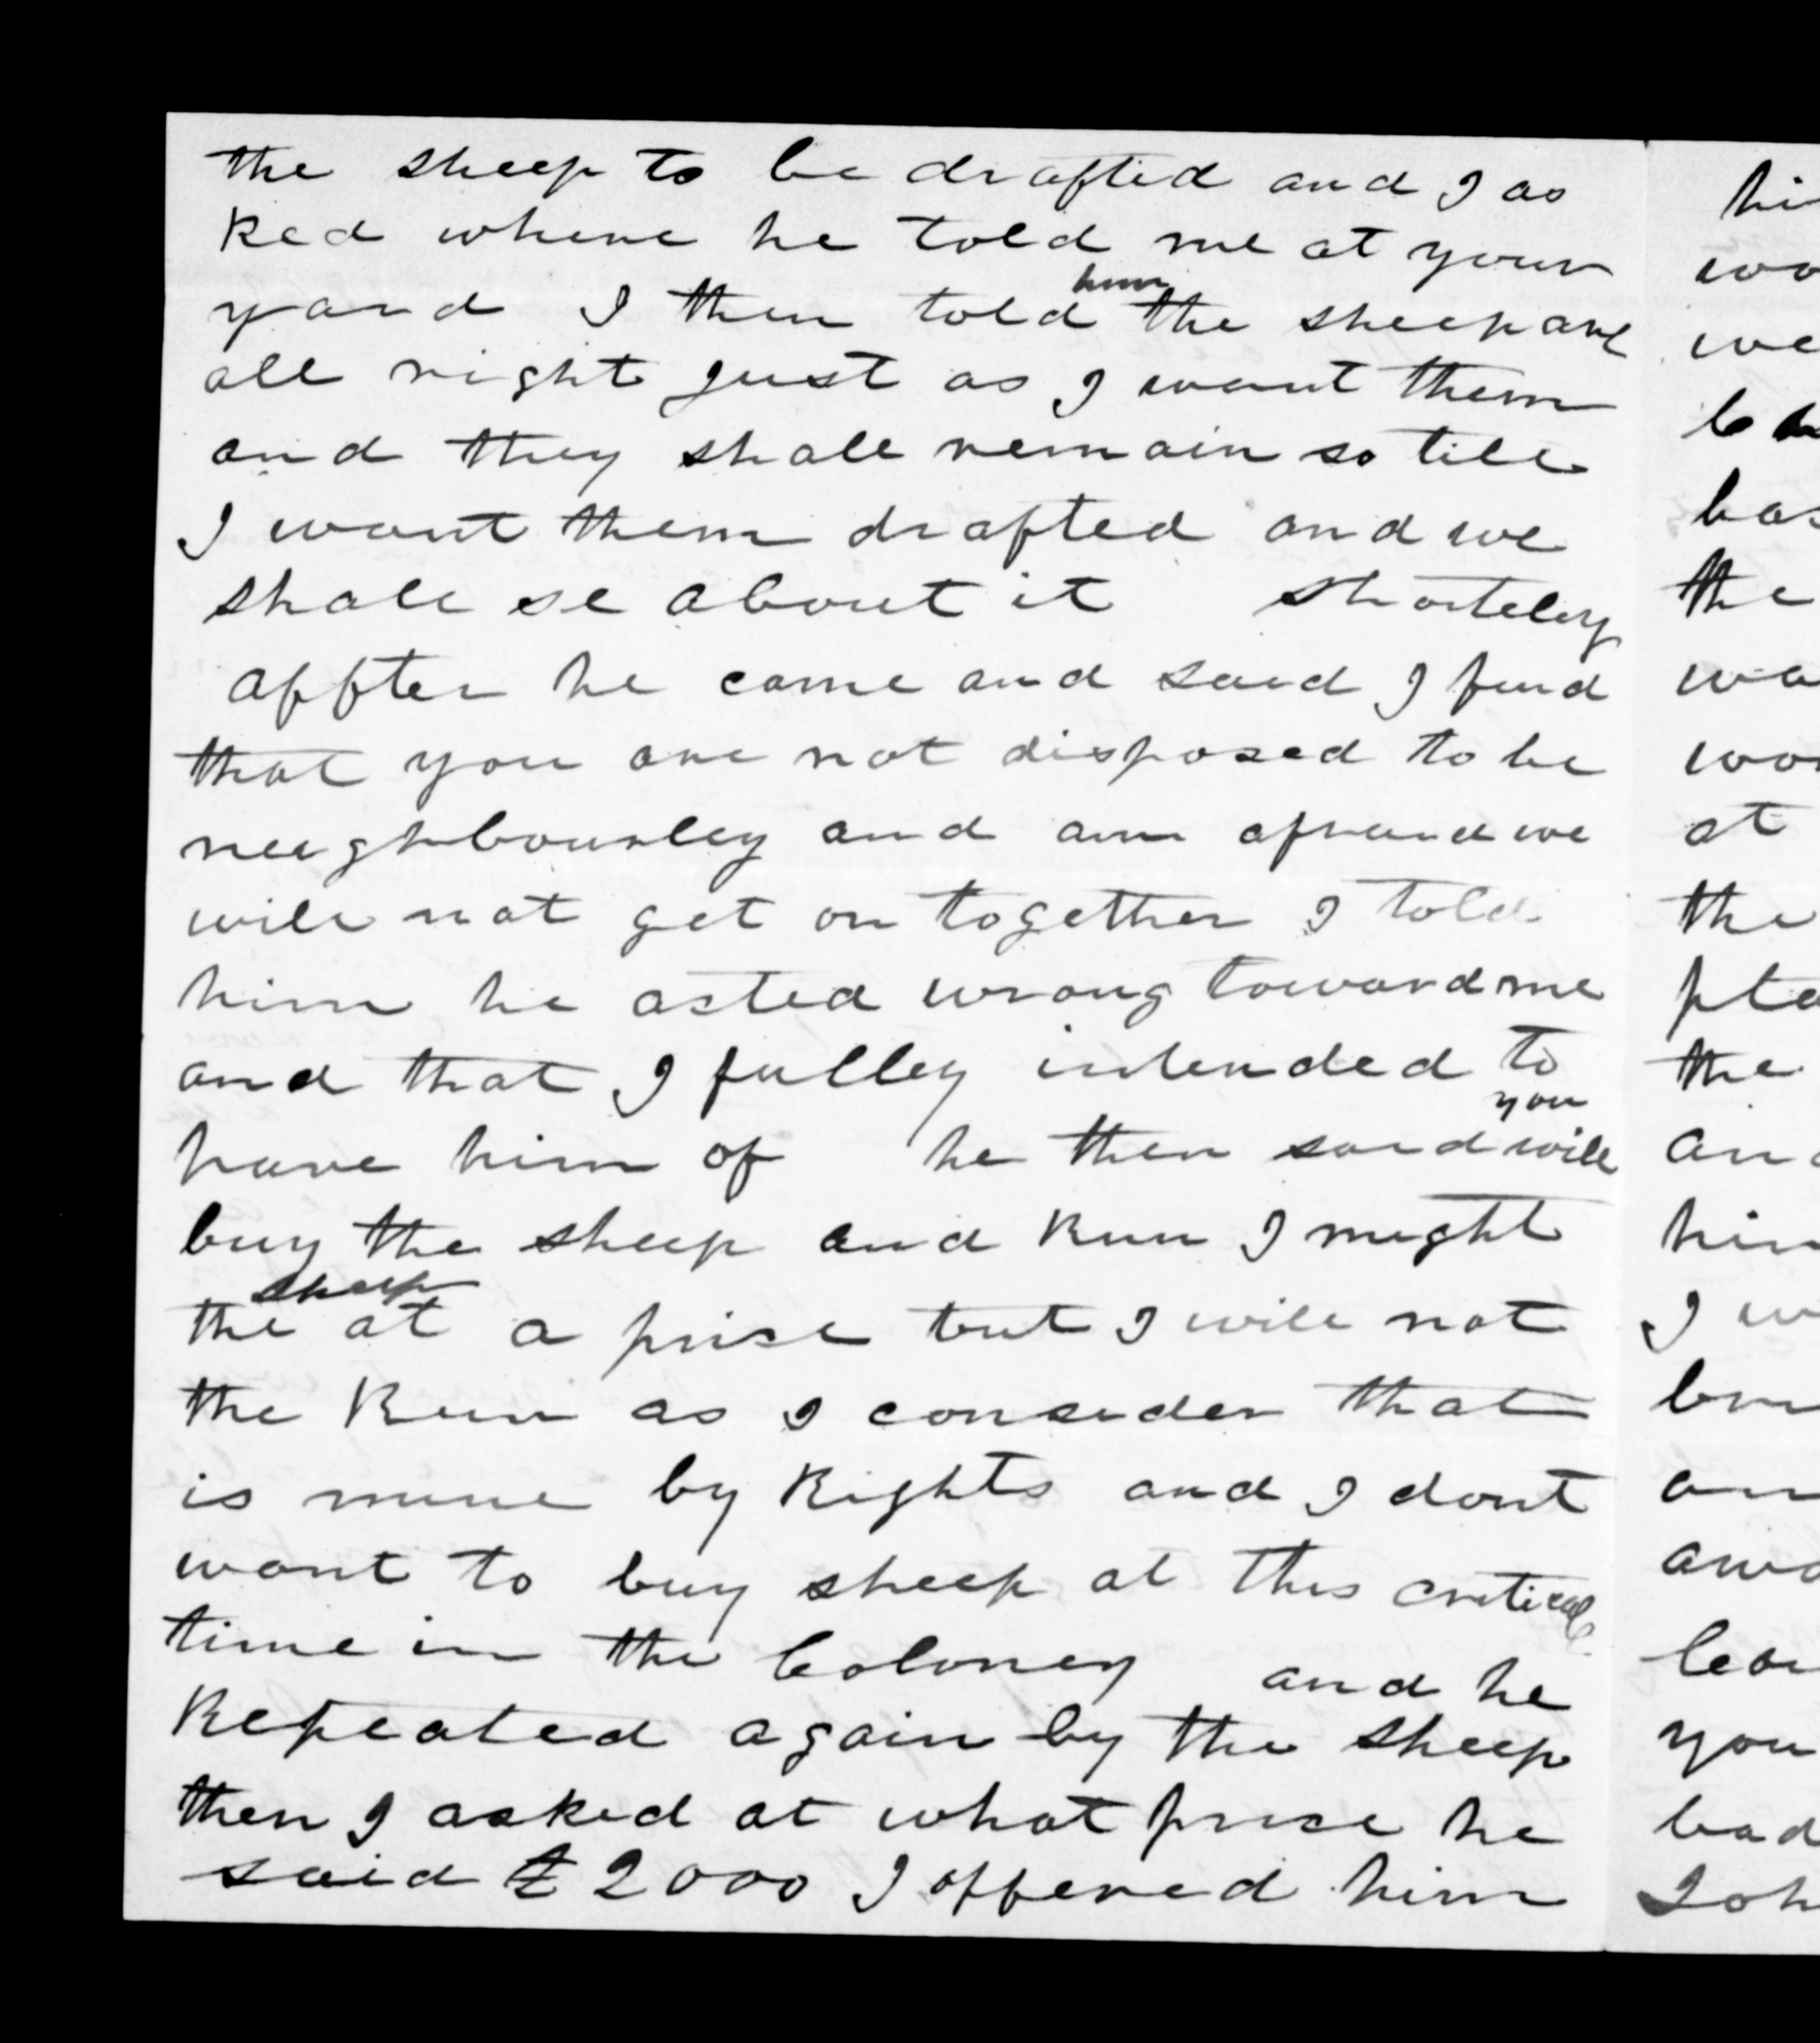 the sheep to be drafted and I as
ked where he told me at your
him
yard I then told the sheep are
all right just as I want them
and they shall remain so till
I want them drafted and we
shall se about it shorteley
affter he came and said I find
that you are not disposed to be
neighbourley and am afraid we
will not get on together I told
him he acted wrong toward me
and that I fulley intended to
you
have him of he then said will
buy the sheep and Run I might
sheep
the at a prise but I will not
the Run as I consider that
is mine by Rights and I dont
want to buy sheep at this critical
time in the Coloney and he
Repeated again by the sheep
then I asked at what price he
said £2000 I offered him